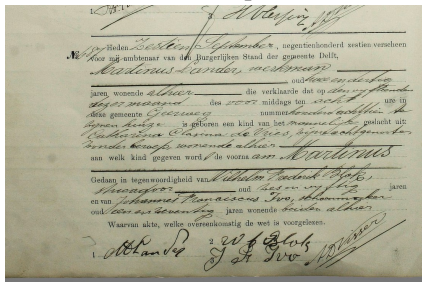 Heden Zestien September, negentienhonderd zestien verscheen
voor mij ambtenaar van den Burgerlijken Stand der gemeente Delft,
Martinus Zander, werkman
oud twee en dertig
jaren wonende alhier die verklaarde dat op den vijftienden
dezer maand des voor middags ten acht ure in
deze gemeente nummer
is geboren een kind van het mannelijk geslacht uit:
Catharina Clasina de Vries, zijne echtgenoote
zonder beroep wonende alhier
aan welk kind gegeven word de voornaam Martinus
Gedaan in tegenwoordigheid van Wilhelm Frederik Blok,
oud zes en vijftig jaren
en van Johannes Franciscus Ivo,
oud zeventig jaren wonende beiden alhier
Waarvan akte, welke overeenkomstig de wet is voorgelezen.
1 2 W F Blok
J F Ivo
Visser